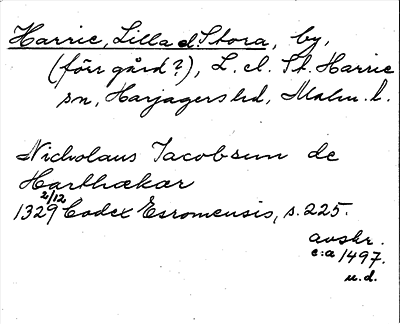 Harrie, Lilla el. Stora, by,
(förr gård?), L. el. St. Harrie
sn, Harjagers hd, Malm. l.
Nicholaus Jacobsun de
Harthækar
2/12
1329 Codex Esromensis, s. 225.
avskr.
c:a 1497.
u.d.